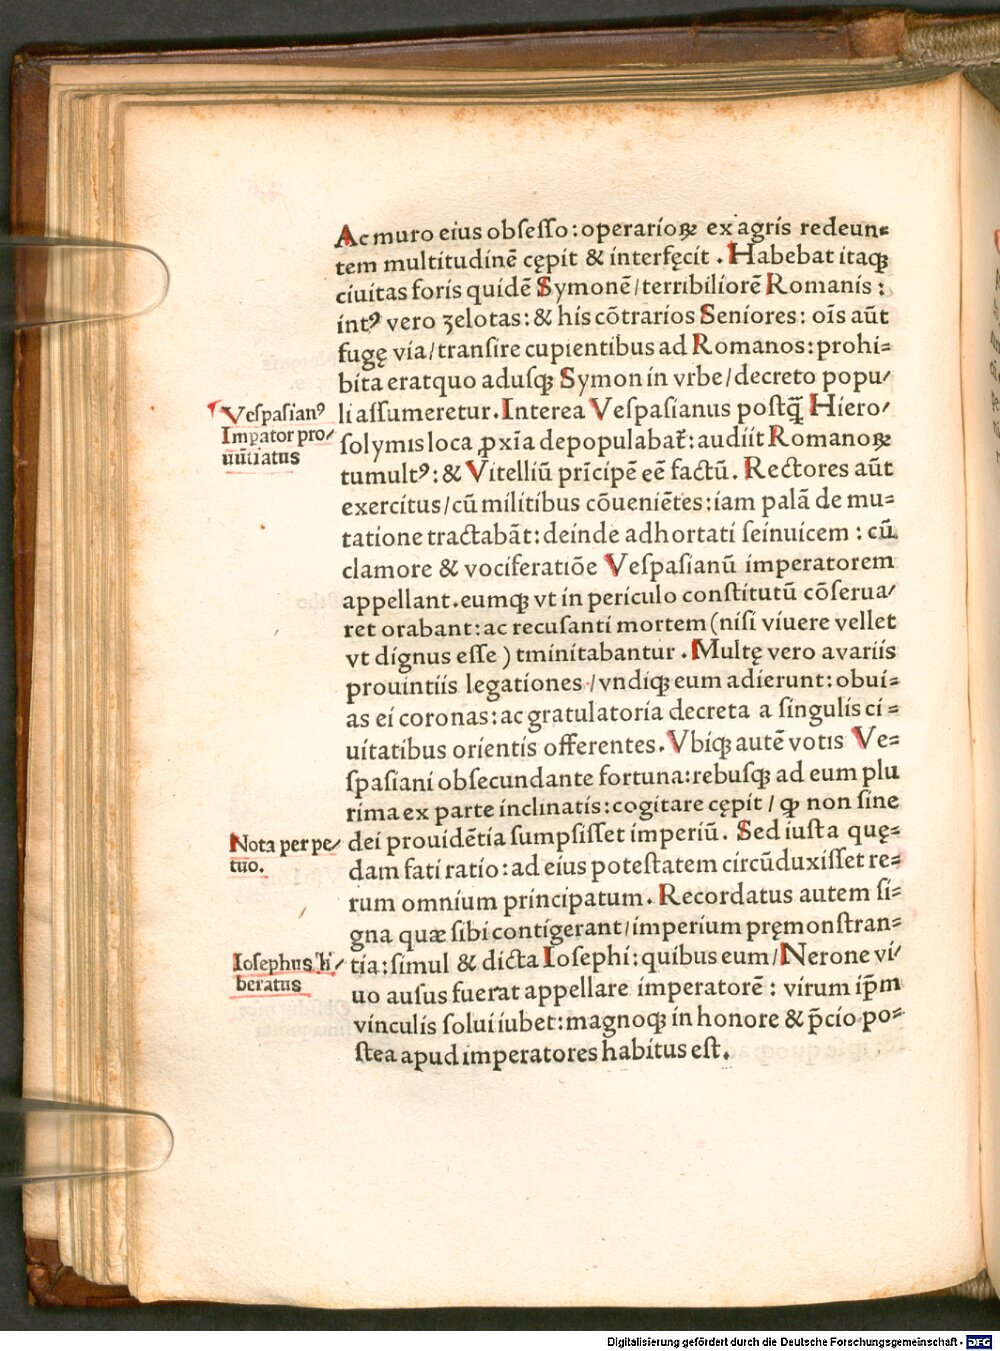 Ac muro eius obſeſſo: operarioꝝ ex agris redeun⸗
tem multitudinē cępit & interfęcit . Habebat itaqꝫ
ciuitas foris quidē Symonē/terribiliorē Romanis:
intꝰ vero ʒelotas: & his cōtrarios Seniores: oīs aūt
fugę via/tranſire cupientibus ad Romanos: prohi⸗
bita erat quo aduſqꝫ Symon in vrbe/decreto popu/
li aſſumeretur. Interea Veſpaſianus poſtq̄ Hiero/
ſolymis loca ꝓxīa depopulabat̄: audiit Romanoꝝ
tumultꝰ: & Vitelliū prīcipē eē factū. Rectores aūt
exercitus/cū militibus cōueniētes: iam palā de mu⸗
tatione tractabāt: deinde adhortati ſeinuicem : cū
clamore & vociferatiōe Veſpaſianū imperatorem
appellant. eumqꝫ vt in periculo conſtitutū cōſerua/
ret orabant: ac recuſanti mortem (niſi viuere vellet
vt dignus eſſe ) tminitabantur . Multę vero avariis
prouintiis legationes /vndiqꝫ eum adierunt: obui⸗
as ei coronas: ac gratulatoria decreta a ſingulis ci⸗
uitatibus orientis offerentes. Vbiqꝫ autē votis Ve⸗
ſpaſiani obſecundante fortuna: rebuſqꝫ ad eum plu
rima ex parte inclinatis: cogitare cępit / ꝙ non ſine
dei prouidētia ſumpſiſſet imperiū. Sed iuſta quę⸗
dam fati ratio: ad eius poteſtatem circūduxiſſet re⸗
rum omnium principatum. Recordatus autem ſi⸗
gna quæ ſibi contigerant/imperium pręmonſtran⸗
tia: ſimul & dicta Ioſephi: quibus eum/Nerone vi/
uo auſus fuerat appellare imperatorē : virum ip̄m
vinculis ſolui iubet: magnoqꝫ in honore & p̄cio po⸗
ſtea apud imperatores habitus eſt.
Veſpaſianꝰ
Impator pro/
uūtiatus
Nota per pe/
tuo.
Ioſephus li/
beratus
Digitalisierung gefördert durch die Deutsche Forschungsgemeinschaft - DFG